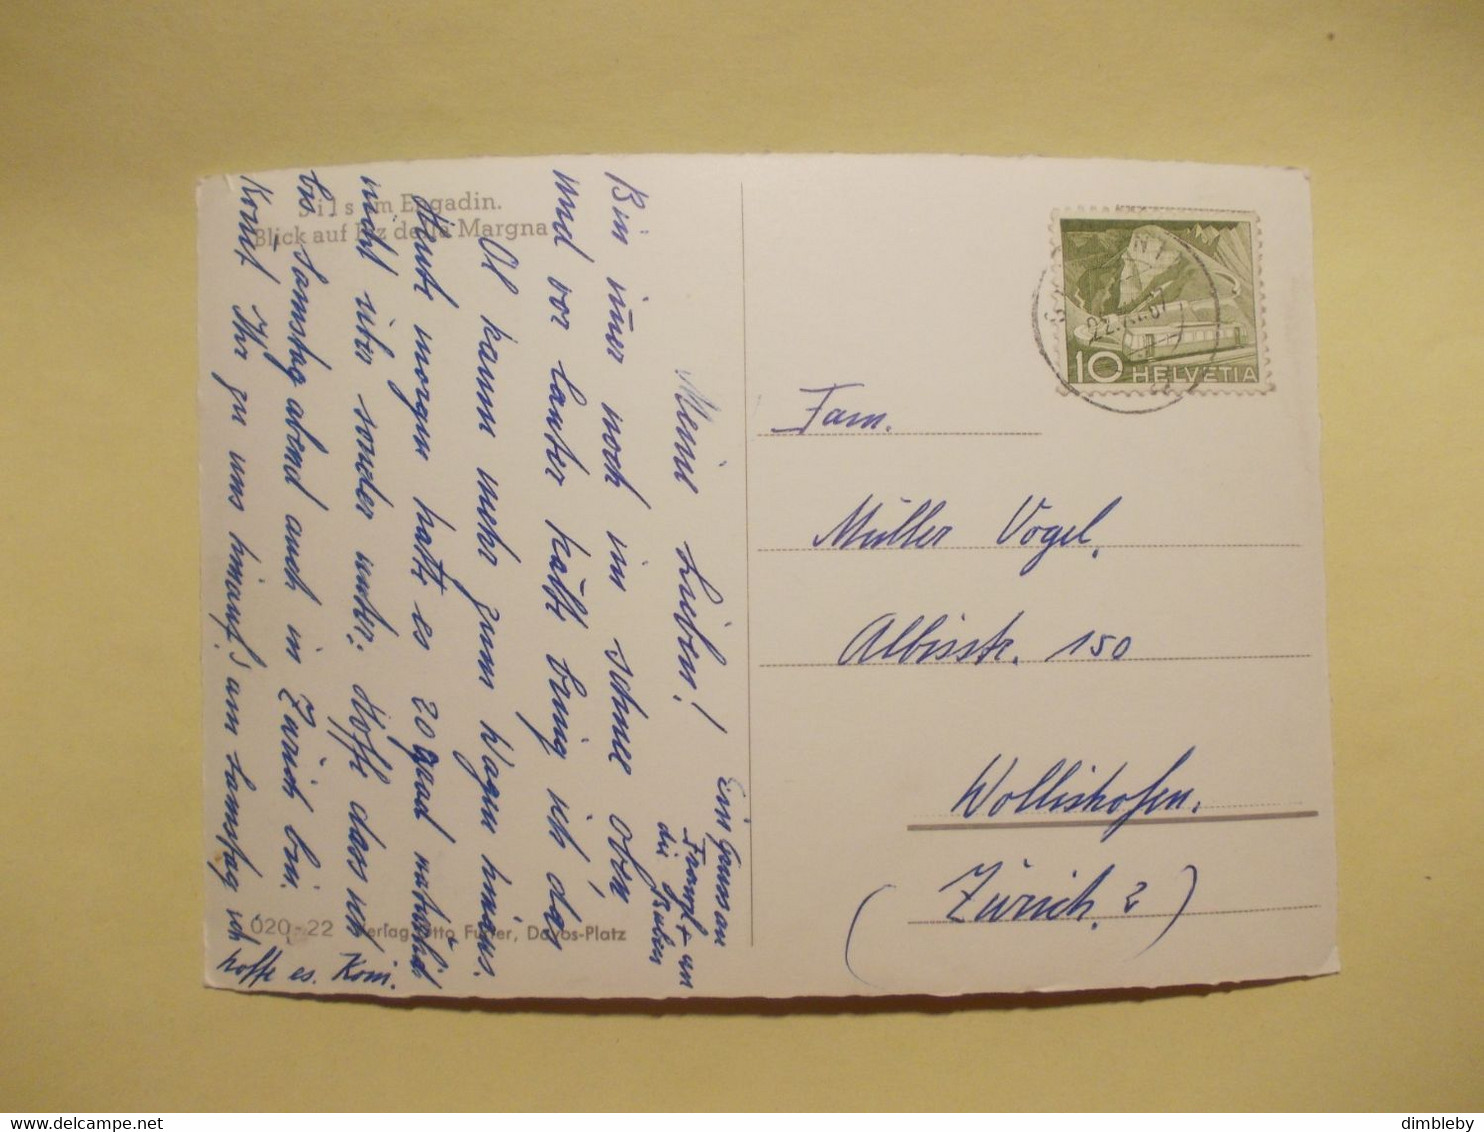 Sils im Engadin.
Blick auf Piz della Margna
Meine Lieben!
Bin nur noch im Schnee oben
und vor lauter kält bring ich das
Öl kaum mehr zum Wagen hinaus.
Heute morgen hatte es 20 grad natürlich
nicht über sonder unter. Hoffe dass ich
bis Samstag abend auch in Zürich bin.
Komt Ihr zu uns hinauf? am Samstag ich
hoffe es. Koni.
Ein Gruss an
Franzl + an
die Gruben
020-22 Verlag Otto Furter, Davos-Platz
10 HELVETIA
Fam.
Müller Vogel,
Albisstr. 150
Wollishofen.
(Zürich, 2)
delcampe.net
dimbleby